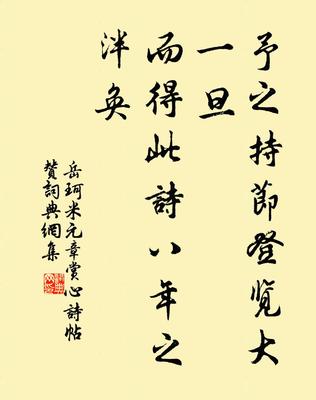 予之持節登覽大
一旦
而得此詩八年之
泮奐
岳珂米元章賞心詩帖
贊詞典網集